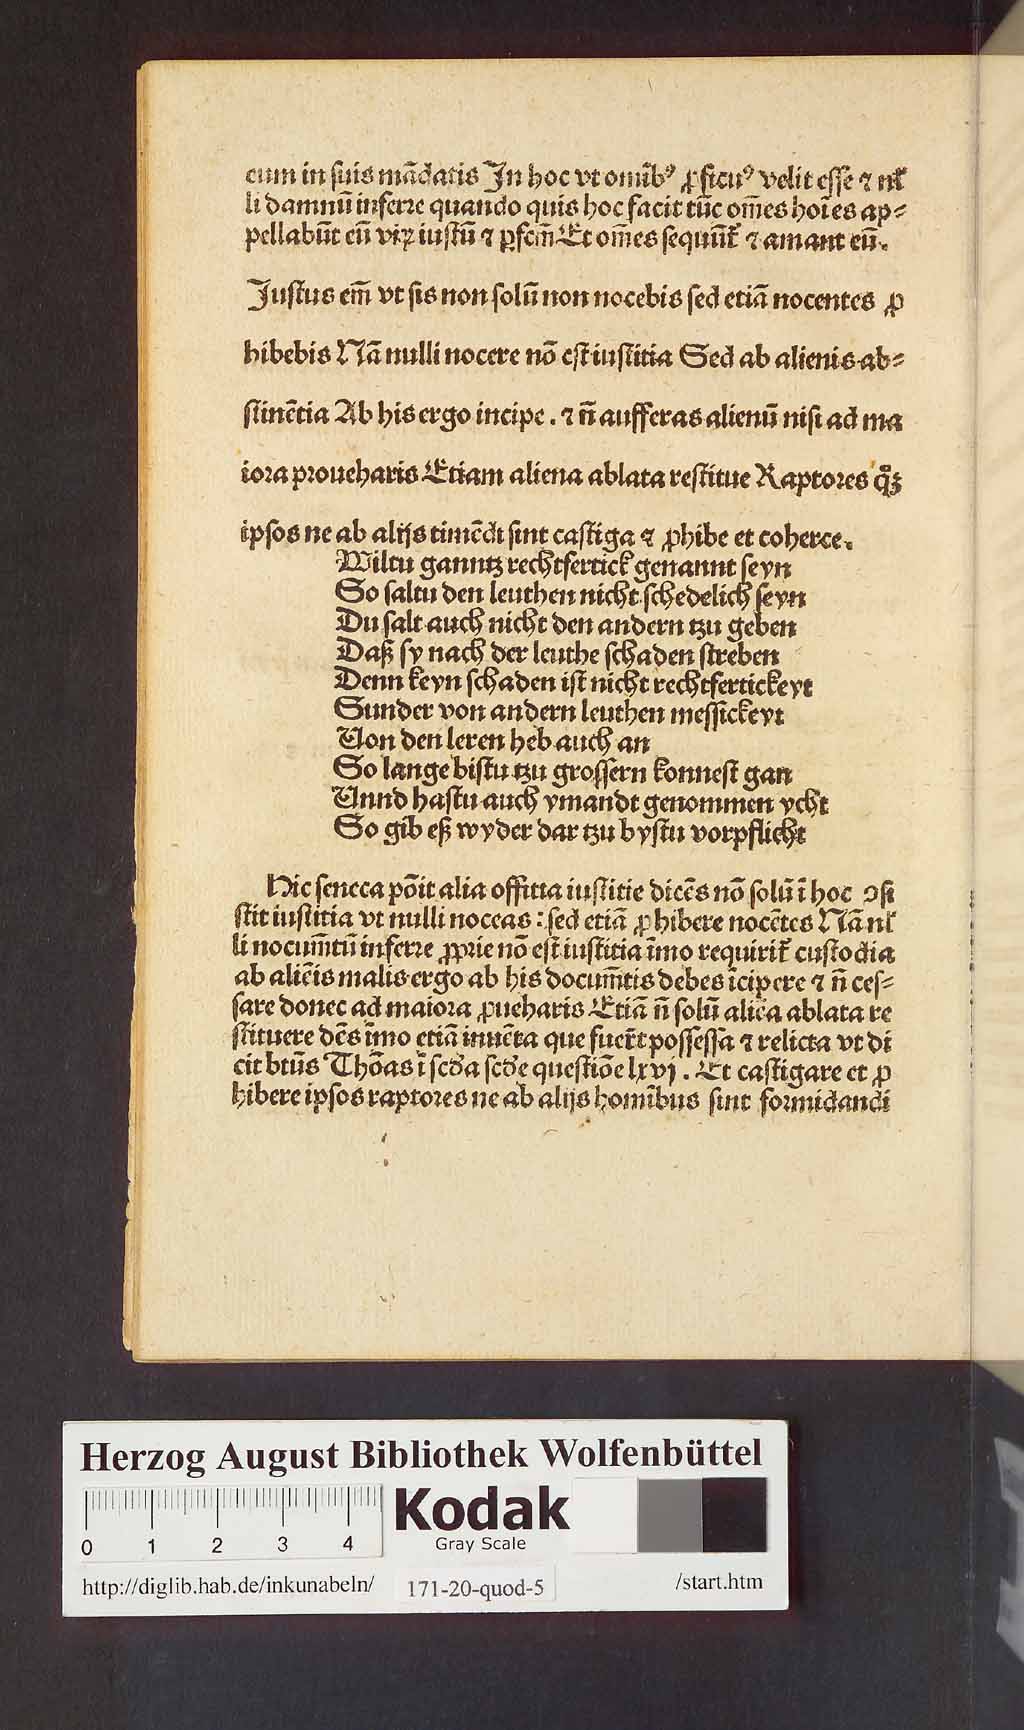 eum in suis mādatis In hoc vt omib⁹ ꝓficu⁹ velit esse ⁊ nł
li damnū inferre quando quis hoc facit tūc om̄es hoīes ap⸗
pellabūt eū viꝝ iustū ⁊ ꝑfcm̄ Et om̄es sequūt̃ ⁊ amant eū.
Justus em̄ vt sis non solū non nocebis sed etiā nocentes ꝓ
hibebis Nā nulli nocere nō est iustitia Sed ab alienis ab⸗
stinētia Ab his ergo incipe . ⁊ n̄ aufferas alienū nisi ad ma
iora proueharis Etiam aliena ablata restitue Raptores qͦꝫ
ipsos ne ab alijs timēdi sint castiga ⁊ ꝓhibe et coherce.
Wiltu ganntz rechtfertick genannt seyn
So saltu den leuthen nicht schedelich seyn
Du salt auch nicht den andern tzu geben
Daß sy nach der leuthe schaden streben
Denn keyn schaden ist nicht rechtfertickeyt
Sunder von andern leuthen messickeyt
Von den leren heb auch an
So lange bistu tzu grossern konnest gan
Vnnd hastu auch ymandt genommen ycht
So gib eß wyder dar tzu bystu vorpflicht
Hic seneca pōit alia offitia iustitie dicēs nō solū ī hoc ↄsi
stit iustitia vt nulli noceas : sed etiā ꝓhibere nocētes Nā nł
li nocum̄tū inferre ꝓprie nō est iustitia īmo requirit̃ custodia
ab aliēis malis ergo ab his docum̄tis debes īcipere ⁊ n̄ ces⸗
sare donec ad maiora ꝓueharis Etiā n̄ solū aliēa ablata re
stituere dēs īmo etiā inuēta que fuer̄t possessa ⁊ relicta vt di
cit btūs Thōas ī scd̄a scd̄e questiōe lxvj . Et castigare et ꝓ
hibere ipsos raptores ne ab alijs homībus sint formidandi
Herzog August Bibliothek Wolfenbüttel
Kodak
Gray Scale
0 1 2 3 4
http://diglib.hab.de/inkunabeln/ 171-20-quod-5 /start.htm